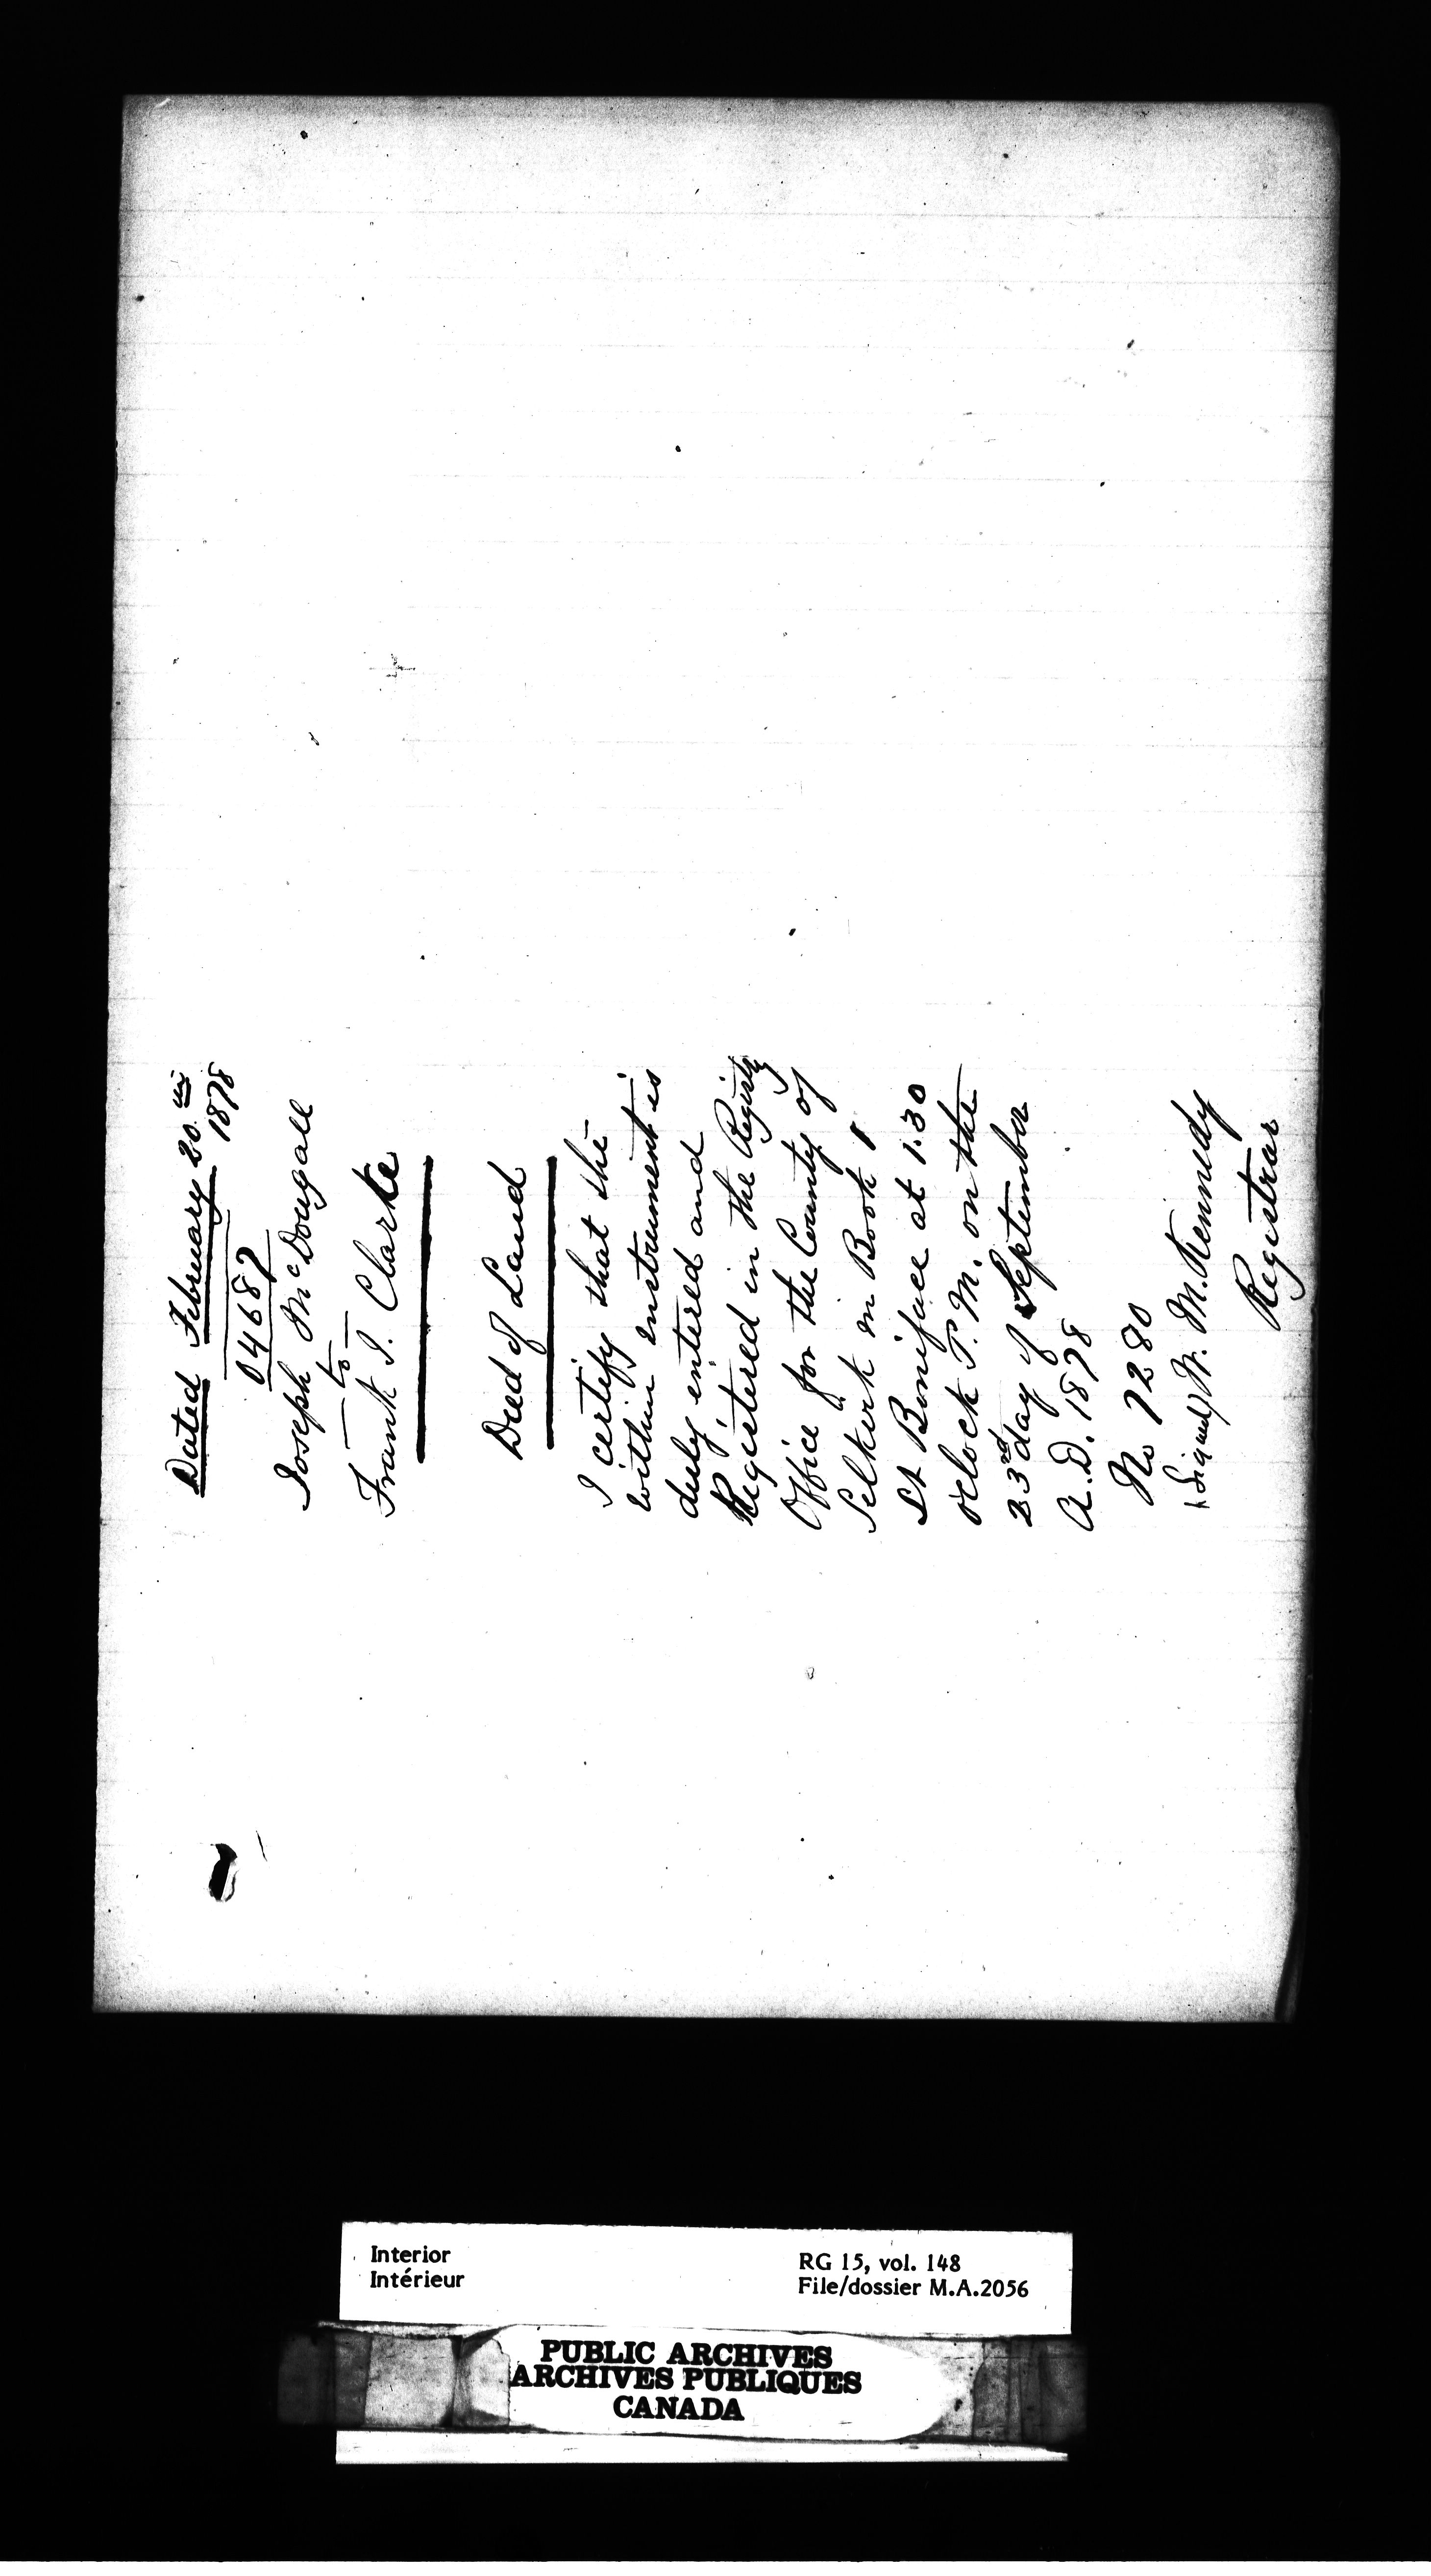 Dated February 20th
1878
04687
Joseph McDougall
— to —
Frank I. Clarke
Deed of Land
I certify that the
within instrument is
duly entered and
Registered in the Registy
Office for the County of
Selkirk in Book
St Boniface at 1.30
oclock P.M. on the
23rd day of September
A.D. 1878
No 7280
(Signed) W. M. Kennedy
Registrar
Interior
Intérieur
RG 15, vol. 148
File/dossier M.A.2056
PUBLIC ARCHIVES
ARCHIVES PUBLIQUES
CANADA